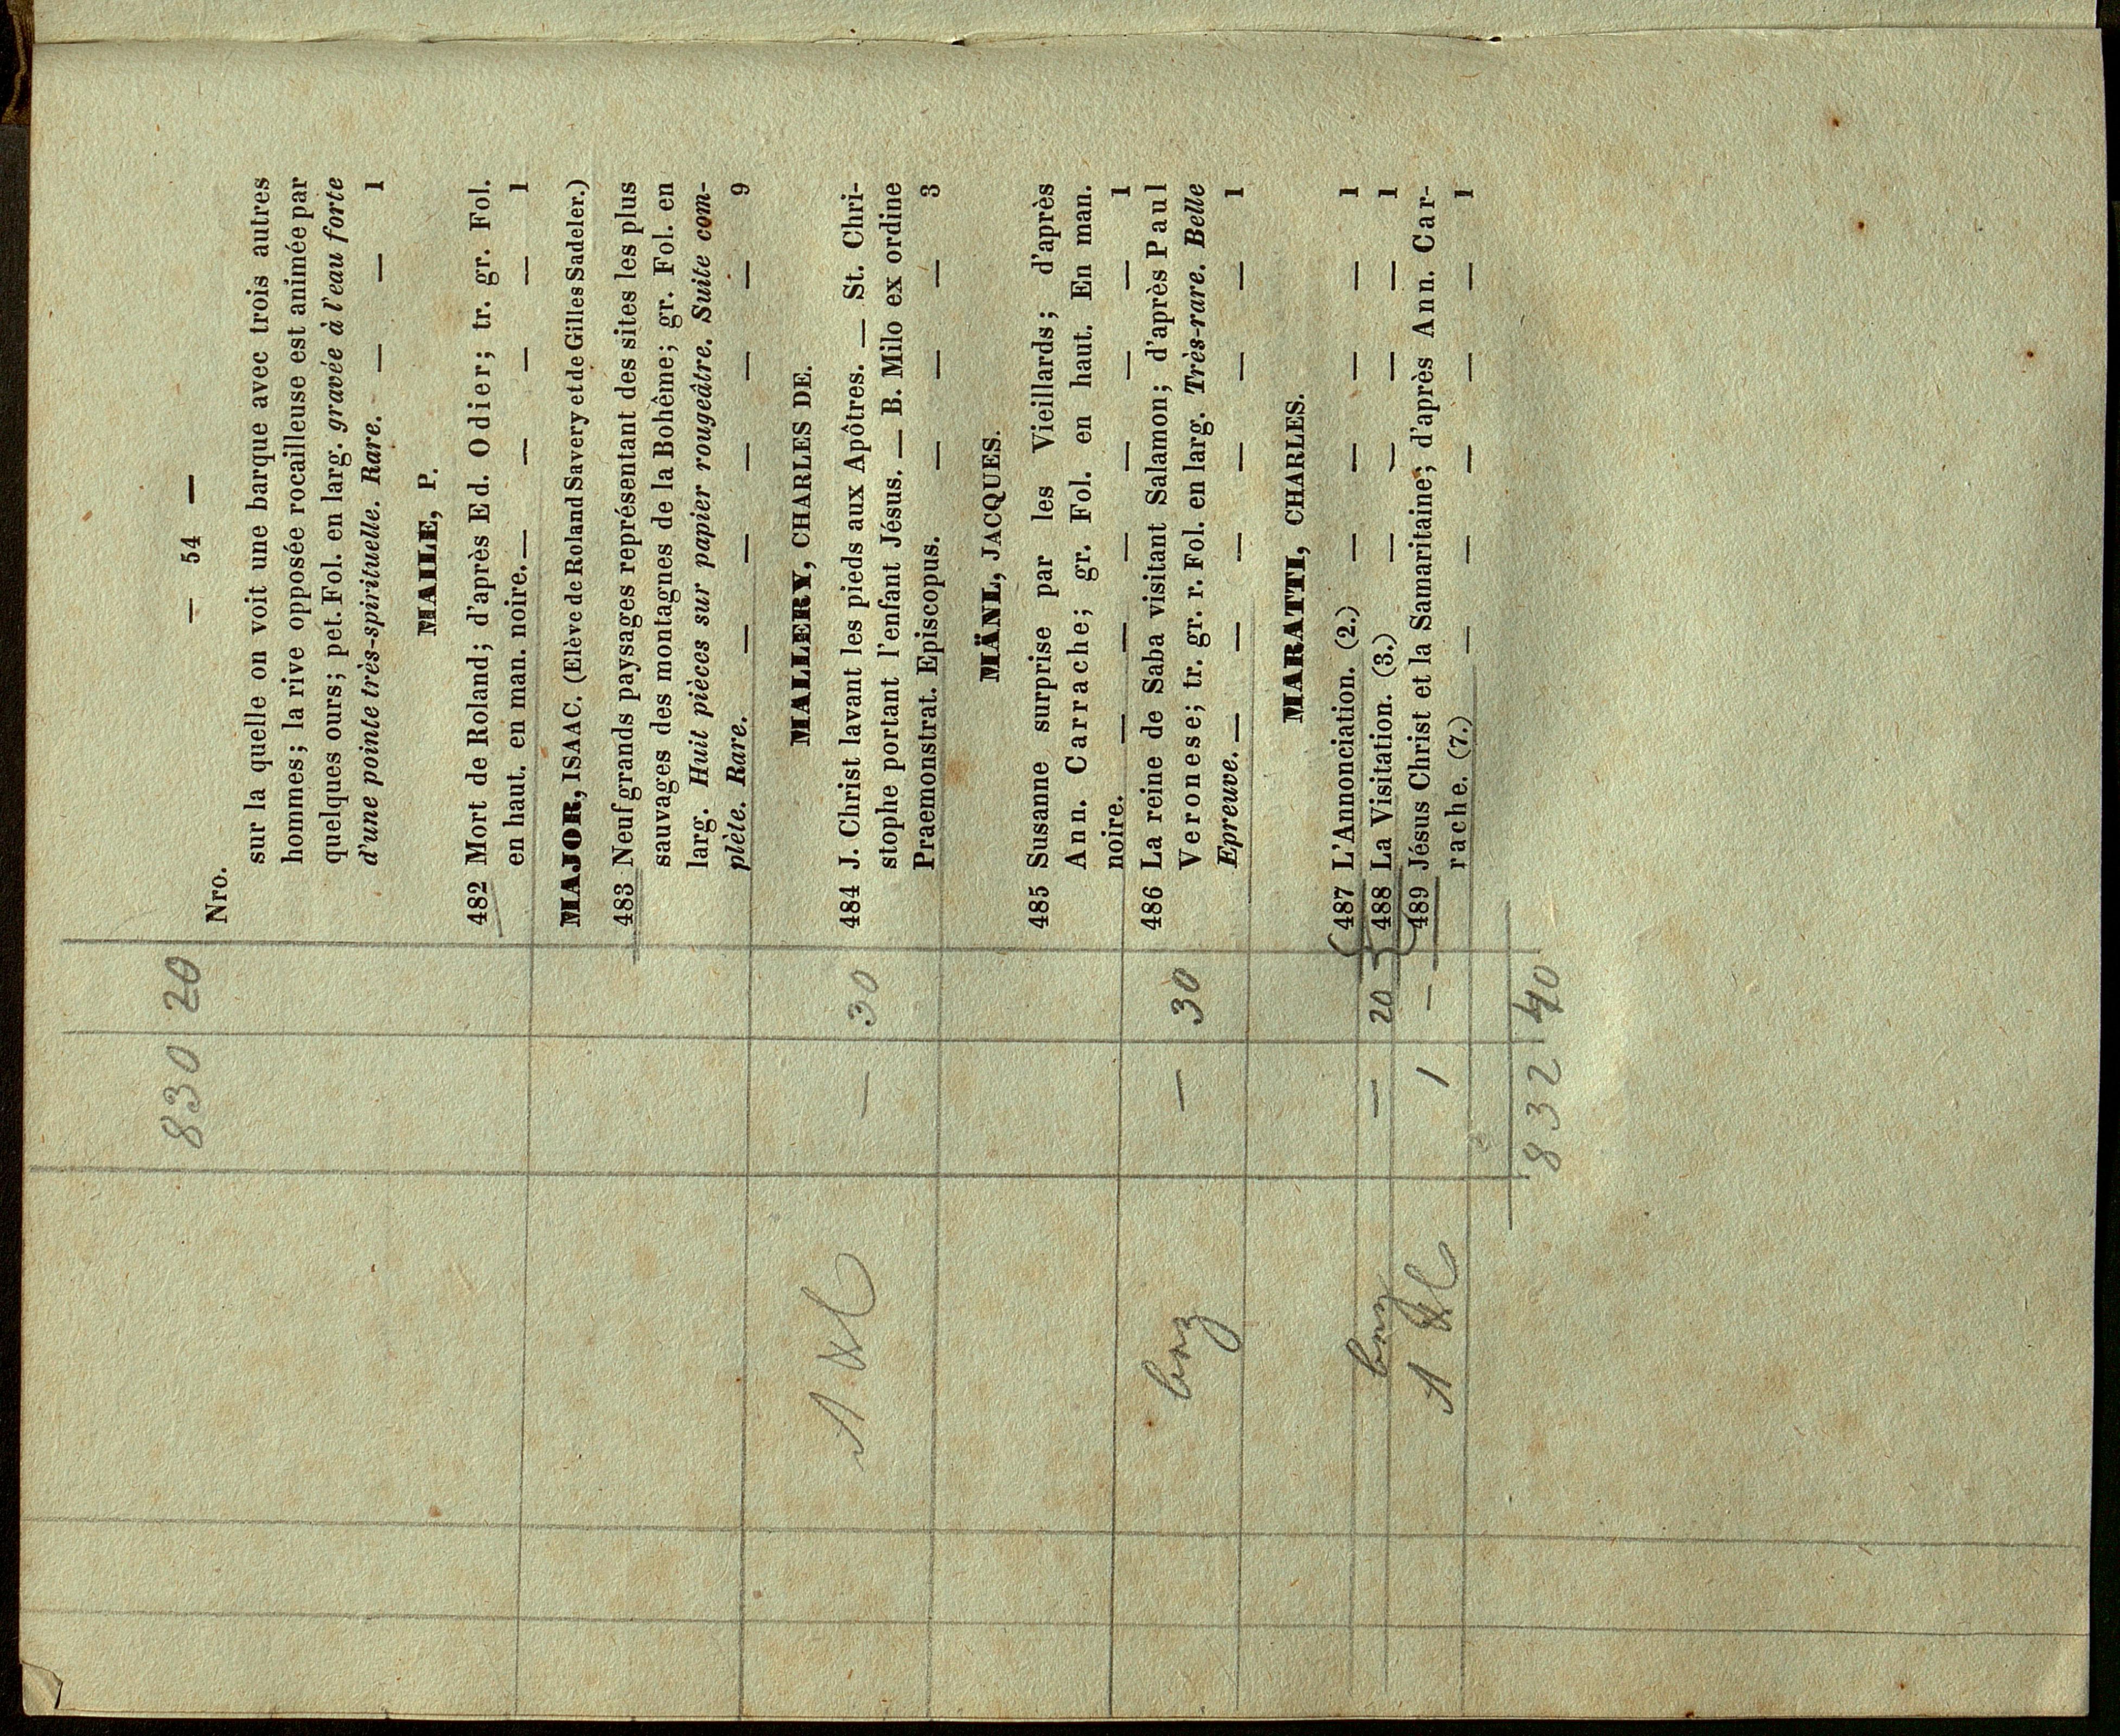 — 54 —
830 20
Nro.
sur la quelle on voit une barque avec trois autres
hommes; la rive opposée rocailleuse est animée par
quelques ours; pet. Fol. en larg. gravée à l'eau forte
d'une pointe très-spirituelle. Rare. — — 1
MAILE, P.
482 Mort de Roland; d'après Ed. Odier; tr. gr. Fol.
en haut. en man. noire. — — — — 1
MAJOR, ISAAC. (Elève de Roland Savery et de Gilles Sadeler.)
483 Neuf grands paysages représentant des sites les plus
sauvages des montagnes de la Bohême; gr. Fol. en
larg. Huit pièces sur papier rougeâtre. Suite com-
plète. Rare. — — — — — 9
MALLERY, CHARLES DE.
— 30 484 J. Christ lavant les pieds aux Apôtres. — St. Chri-
stophe portant l'enfant Jésus. — B. Milo ex ordine
Praemonstrat. Episcopus. — — — 3
MÄNL, JACQUES.
485 Susanne surprise par les Vieillards; d'après
Ann. Carrache; gr. Fol. en haut. En man.
noire. — — — — — — 1
486 La reine de Saba visitant Salamon; d'après Paul
— 30 Veronese; tr. gr. r. Fol. en larg. Très-rare. Belle
Epreuve. — — — — — — 1
MARATTI, CHARLES.
487 L'Annonciation. (2.) — — — — 1
— 20 488 La Visitation. (3.) — — — — 1
1 — 489 Jésus Christ et la Samaritaine; d'après Ann. Car-
rache. (7.) — — — — — 1
832 40